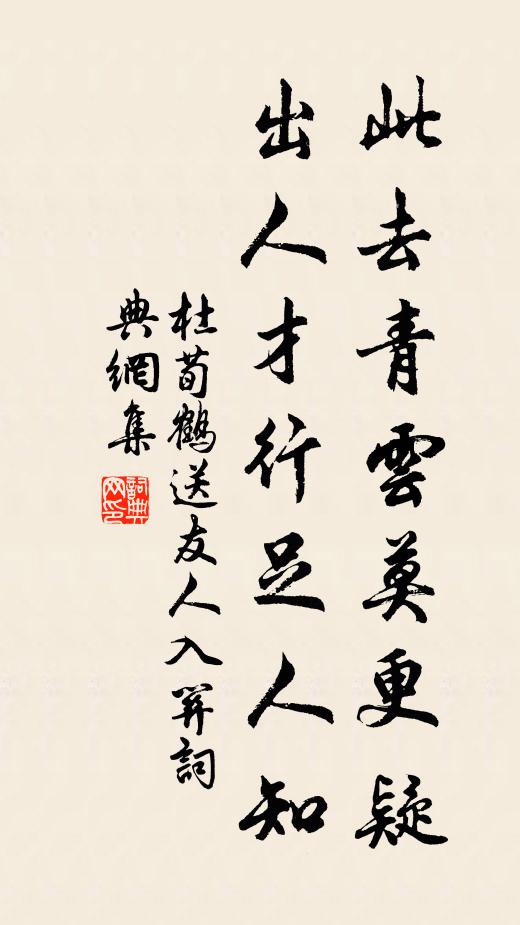 此去青雲莫更疑
出人才行足人知
杜荀鶴送友人入關詞
典網集
詞典網印